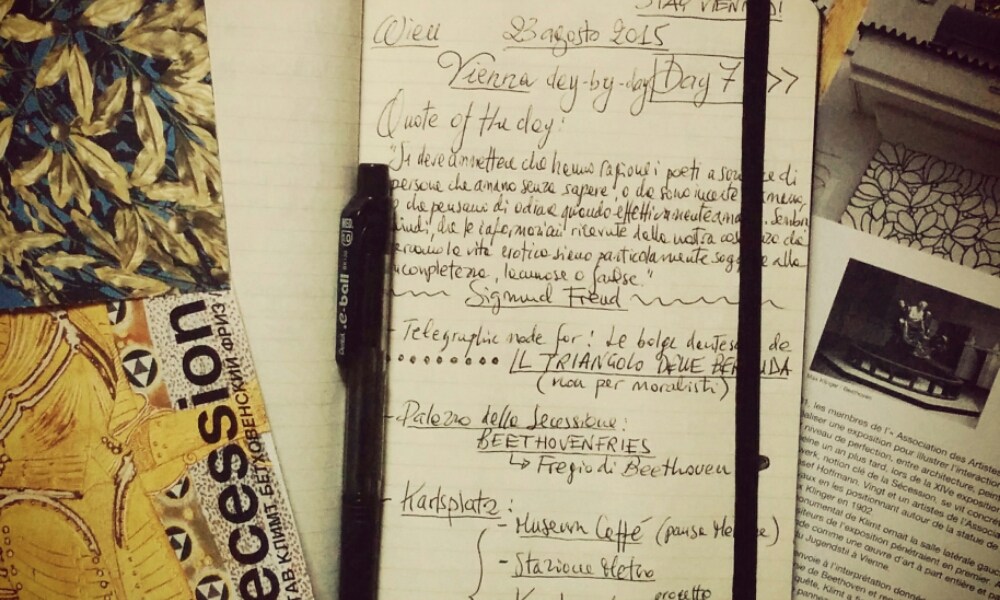 STAY
Wien 23 agosto 2015
Vienna dey-by-day Day 7 >>
Quote of the day:
"Si deve ammettere che hanno ragione i poeti a di
persone che amano senza sapere, o che sono incerte
o che pensano di odiare quando effettivamente Sembra
che le informazioni ricevute dalla nostra
la vita erotica siano particolarmente alla
incompletezza, lacunose o false."
Sigmund Freud
- Telegraphic mode for: Le bolge dantesche
IL TRIANGOLO DELLE BERMUDA
(non per moralisti)
- Palazzo della Secessione:
BEETHOVENFRIES
↳ Fregio di Beethoven
- Karlsplatz:
- Museum Caffé (pausa
- Stazione Metro
progetto
Pentel .e-ball
ecession
БЕТХОВЕНСКИЙ ФРИЗ
ТАВ КЛИМТ
Max Klinger: Beethoven
les membres de l'« Association des Artistes
aliser une exposition pour illustrer l'interaction
niveau de perfection, entre architecture, pein
eine un an plus tard, lors de la XIVe exposition
werk, notion clé de la Sécession, se vit concré
sef Hoffmann. Vingt et un artistes de l'Associa
aux en les positionnant autour de la statue de
x Klinger en 1902.
onumental de Klimt ornait la salle latérale gauc
siteurs de l'exposition pénétraient en premier
de comme une œuvre d'art à part entière et
u Jugendstil à Vienne.
nvoie à l'interprétation donnée
de Beethoven et